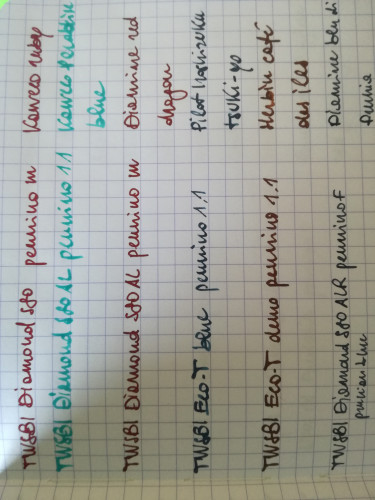 TWSBI Diamond 580 pennino m Kaweco ruby
TWSBI Diamond 580 AL pennino 1.1 Kaweco paradise
blue
TWSBI Diamond 580 AL pennino m Diamine red
dragon
TWSBI Eco-T blue pennino 1.1 Pilot Iroshizuku
tsuki-yo
TWSBI Eco-T demo pennino 1.1 Herbin café
des iles
TWSBI Diamond 580 ALR pennino F Diamine
prussian blue